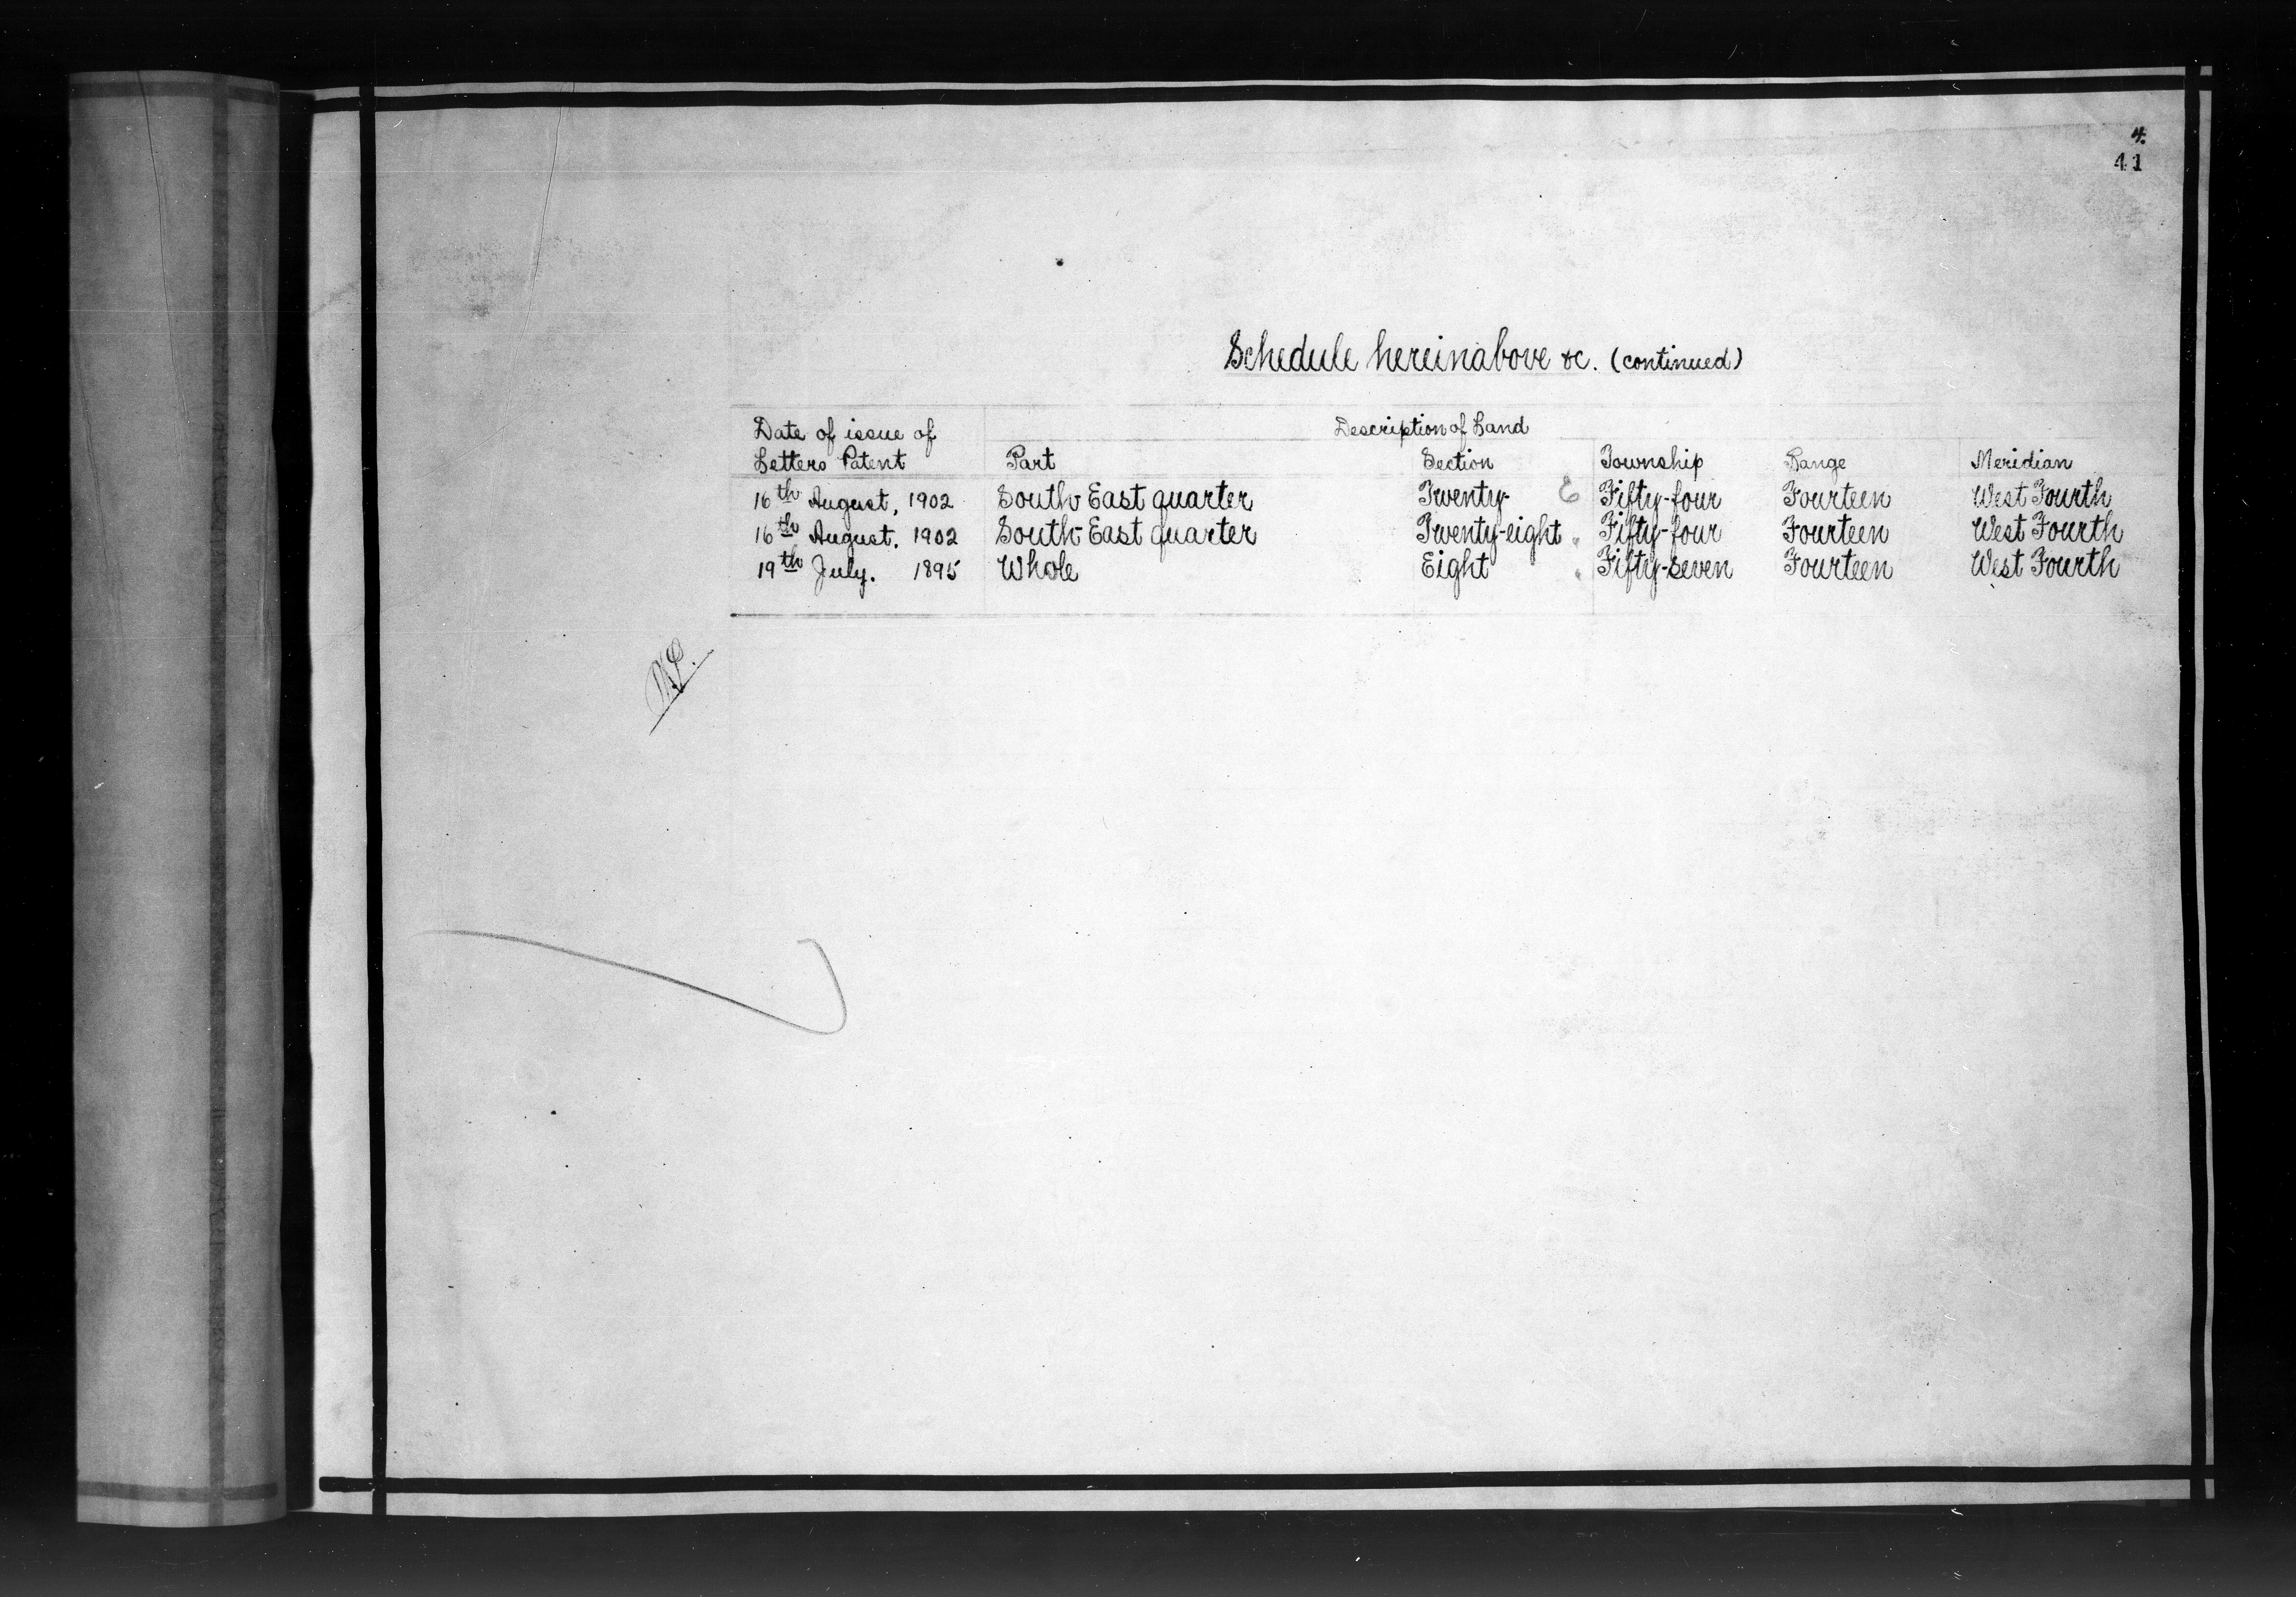 4.
41
Schedule hereinabove &c. (continued)
Date of issue of Letters Patent Description of Land
Part Section Township Range Meridian
16th August, 1902 South East quarter Twenty- E Fifty-four Fourteen West Fourth
16th August. 1902 South East quarter Twenty-eight " Fifty-four Fourteen West Fourth
19th July. 1895 Whole Eight " Fifty-seven Fourteen West Fourth